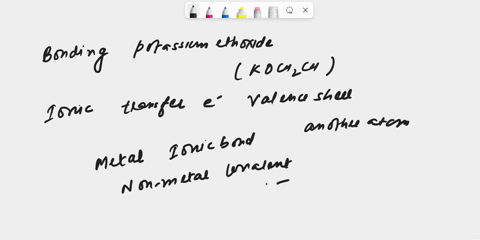 Bonding potassium ethoxide
(KOCH2CH)
Ionic transfer e- valence shell
another atom
Metal Ionic bond
Non-metal covalent